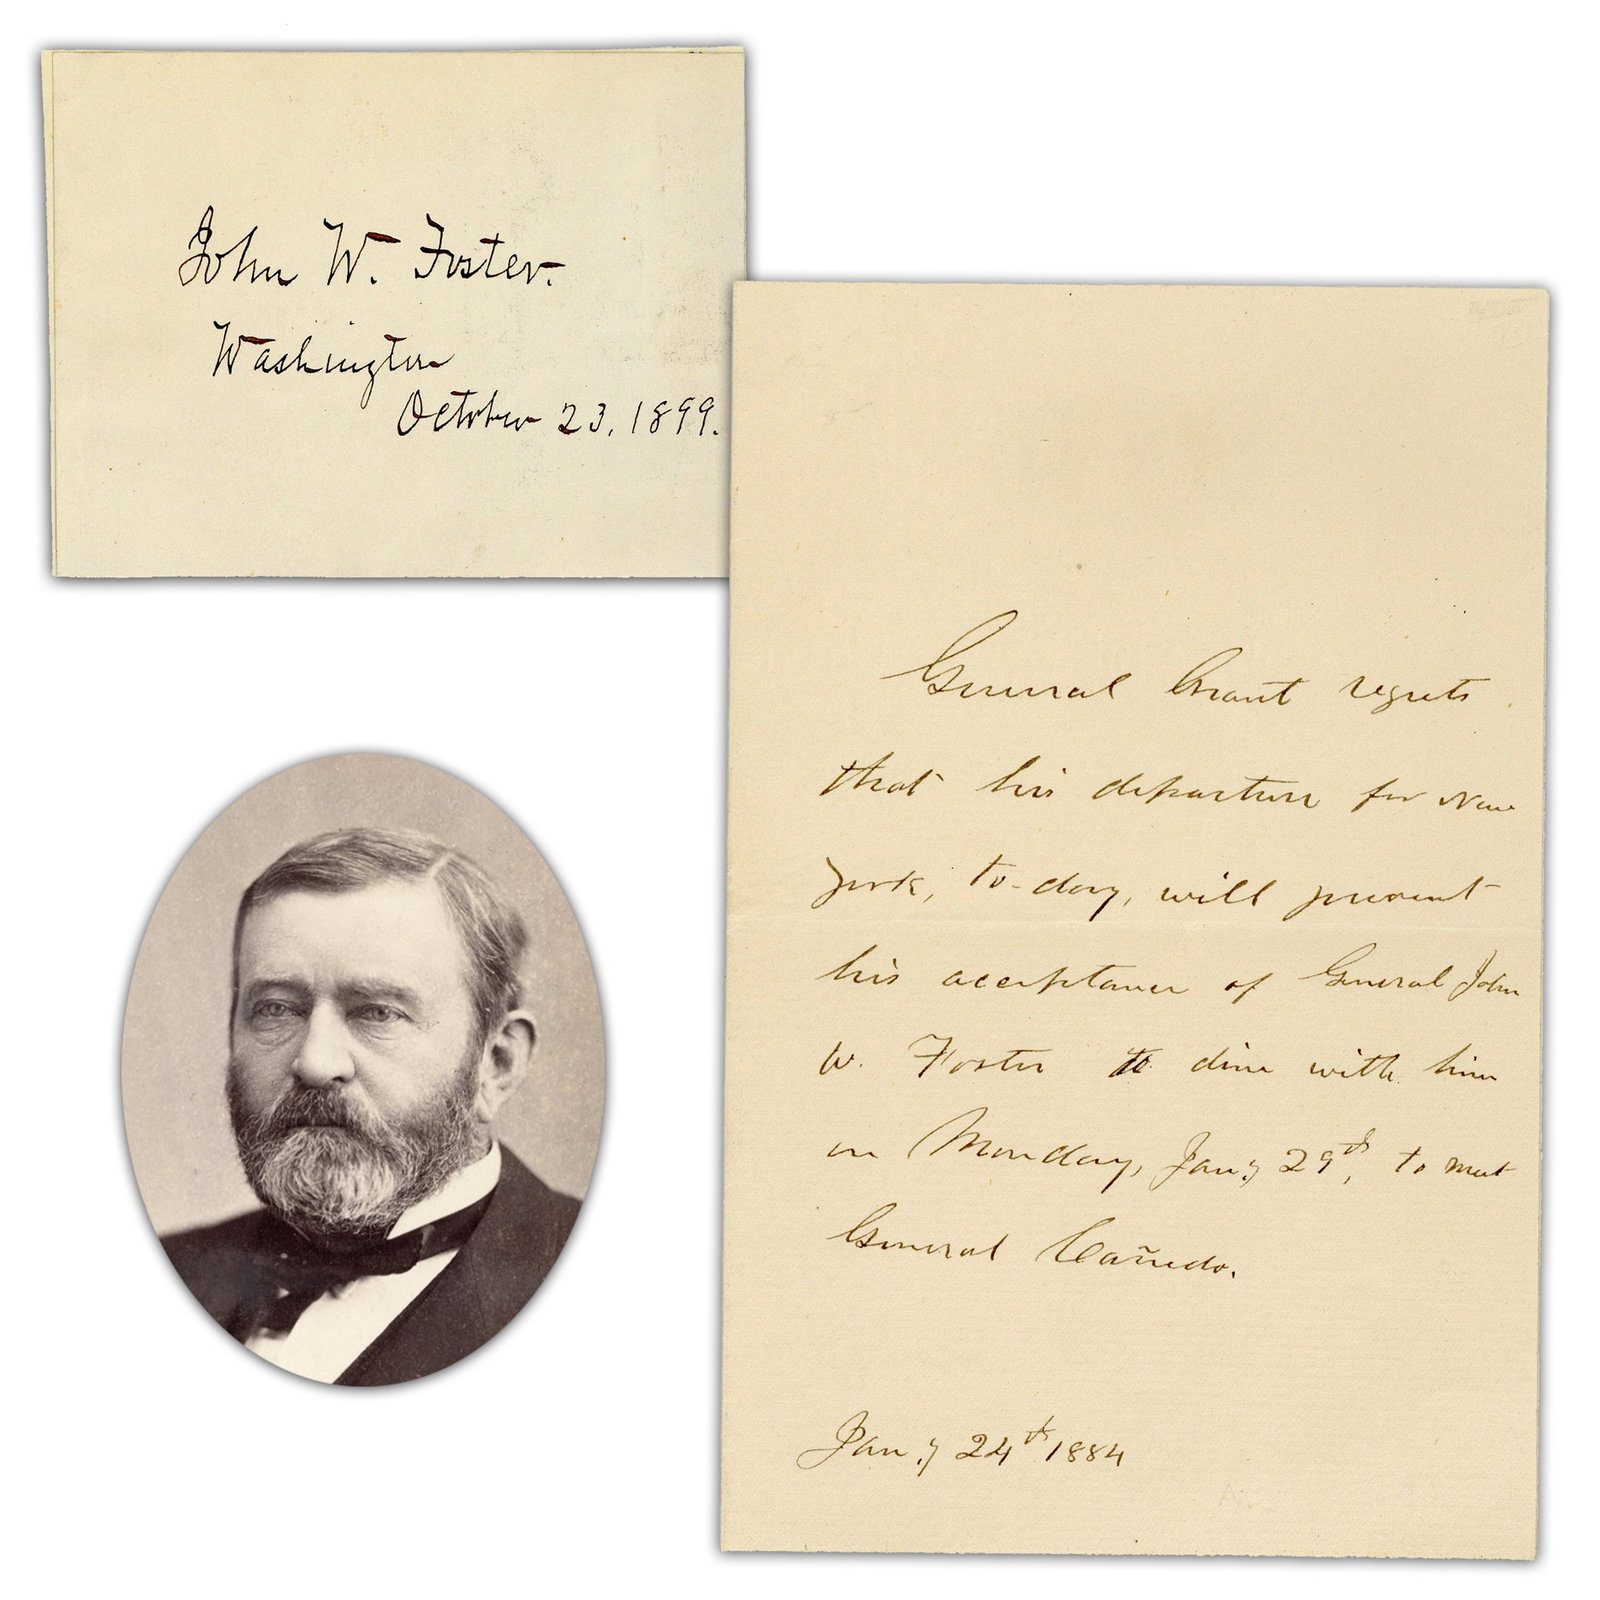 John W. Foster.
Washington
October 23, 1899.
General Grant regrets
that his departure for New
York, to-day, will prevent
his acceptance of General John
W. Foster to dine with him
on Monday, Jan.y 29th, to meet
General Cañedo.
Jan.y 24th 1884